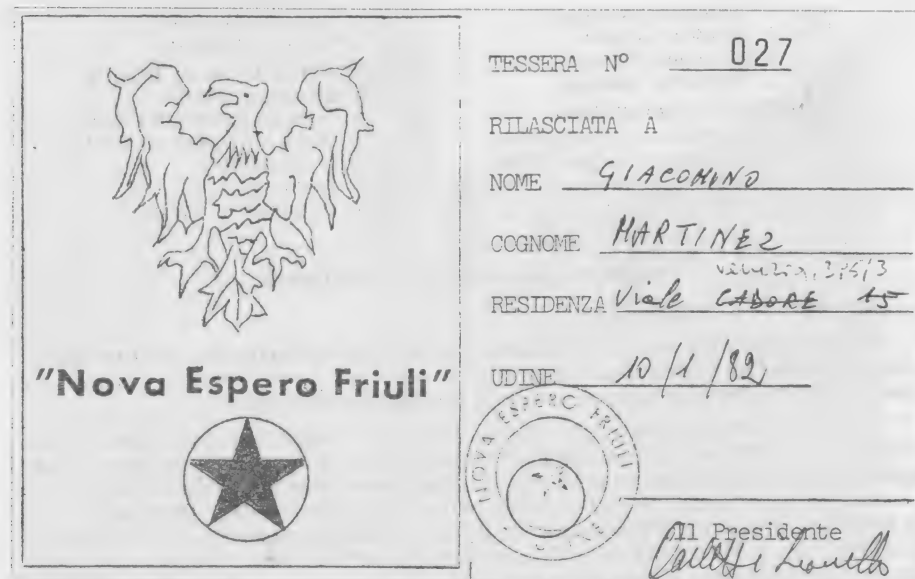 "Nova Espero Friuli"
TESSERA N° 027
RILASCIATA A
NOME GIACOMINO
COGNOME MARTINEZ
venezia, 375/3
RESIDENZA Viale CADORE 15
UDINE 10/1/82
NOVA ESPERO FRIULI
Il Presidente